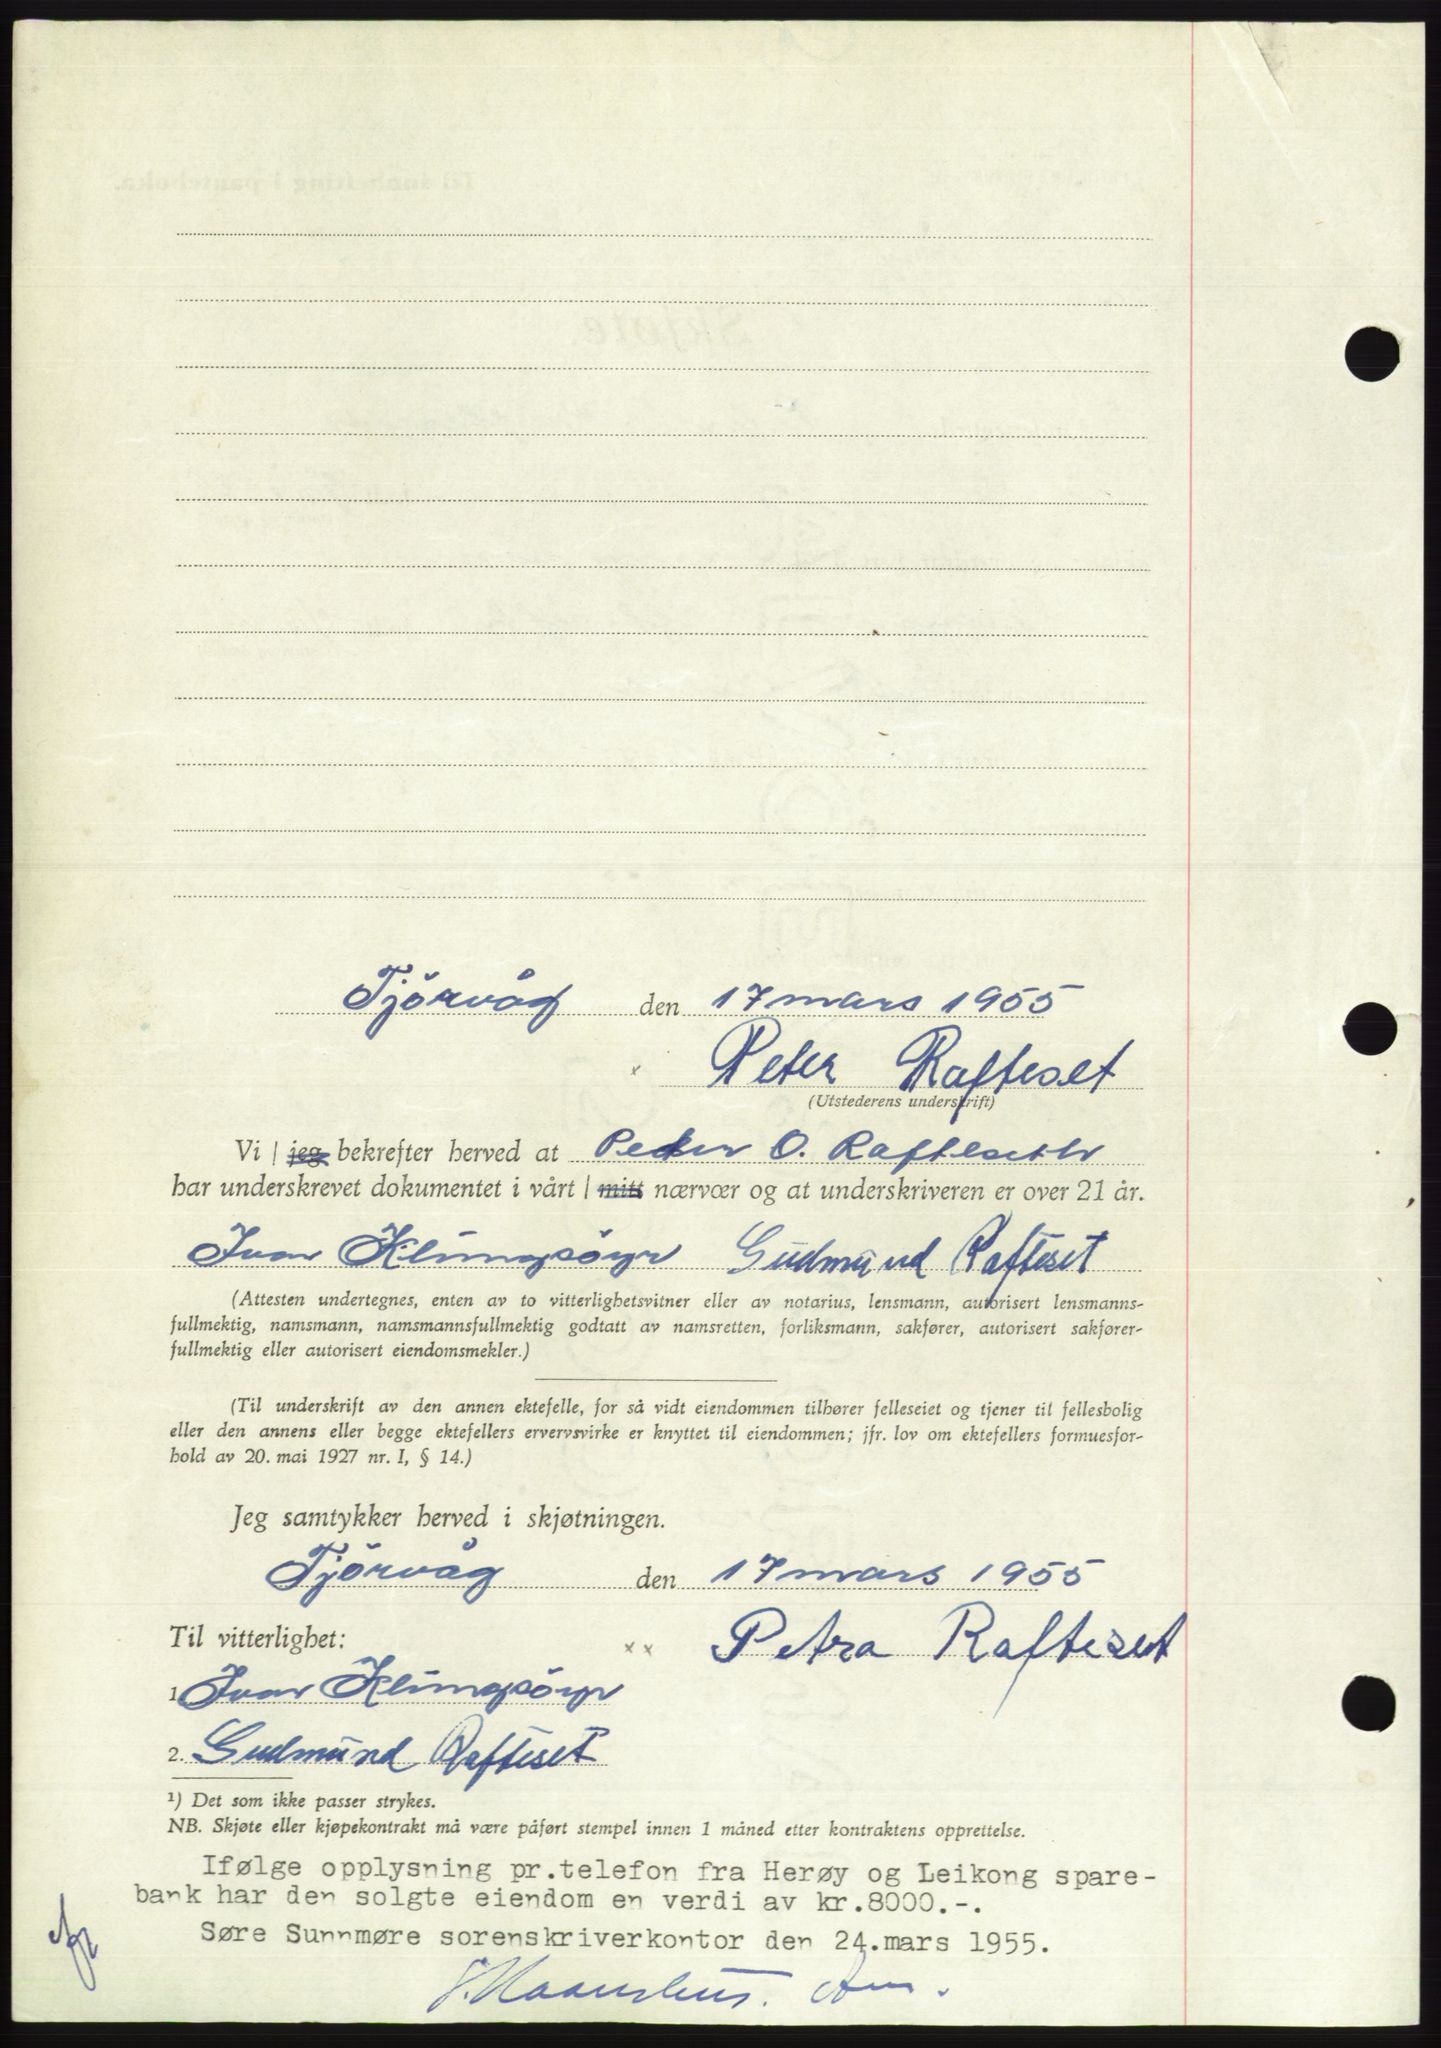 Tjörvåg den 17 mars 1955
Peter Rafteset
(Utstederens underskrift)
Vi / jeg bekrefter herved at Peder O. Raftesetbr
har underskrevet dokumentet i vårt / mitt nærvær og at underskriveren er over 21 år.
Ivar Klungsöyr Gudmund Rafteset
(Attesten undertegnes, enten av to vitterlighetsvitner eller av notarius, lensmann, autorisert lensmanns-
fullmektig, namsmann, namsmannsfullmektig godtatt av namsretten, forliksmann, sakfører, autorisert sakfører-
fullmektig eller autorisert eiendomsmekler.)
(Til underskrift av den annen ektefelle, for så vidt eiendommen tilhører felleseiet og tjener til fellesbolig
eller den annens eller begge ektefellers ervervsvirke er knyttet til eiendommen; jfr. lov om ektefellers formuesfor-
hold av 20. mai 1927 nr. I, § 14.)
Jeg samtykker herved i skjøtningen.
Tjörvåg den 17 mars 1955
Til vitterlighet: x x Petra Rafteset
1. Ivar Klungsöyr
2. Gudmund Rafteset
¹) Det som ikke passer strykes.
NB. Skjøte eller kjøpekontrakt må være påført stempel innen 1 måned etter kontraktens opprettelse.
Ifølge opplysning pr.telefon fra Herøy og Leikong spare-
bank har den solgte eiendom en verdi av kr.8000.-.
Søre Sunnmøre sorenskriverkontor den 24.mars 1955.